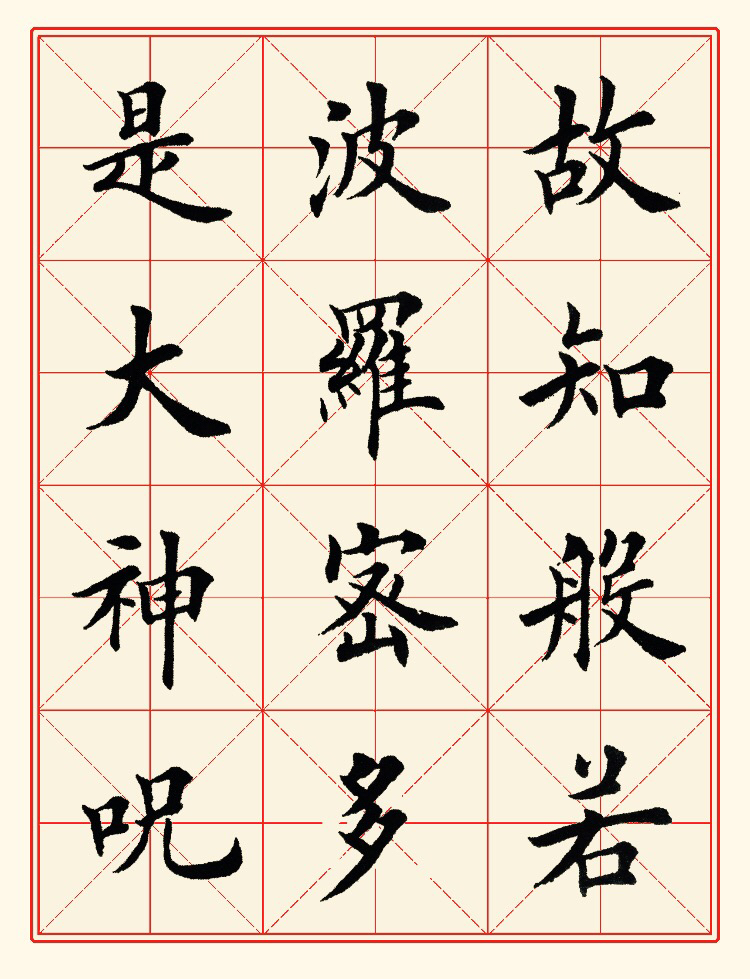 故知般若
波羅密多
是大神呪